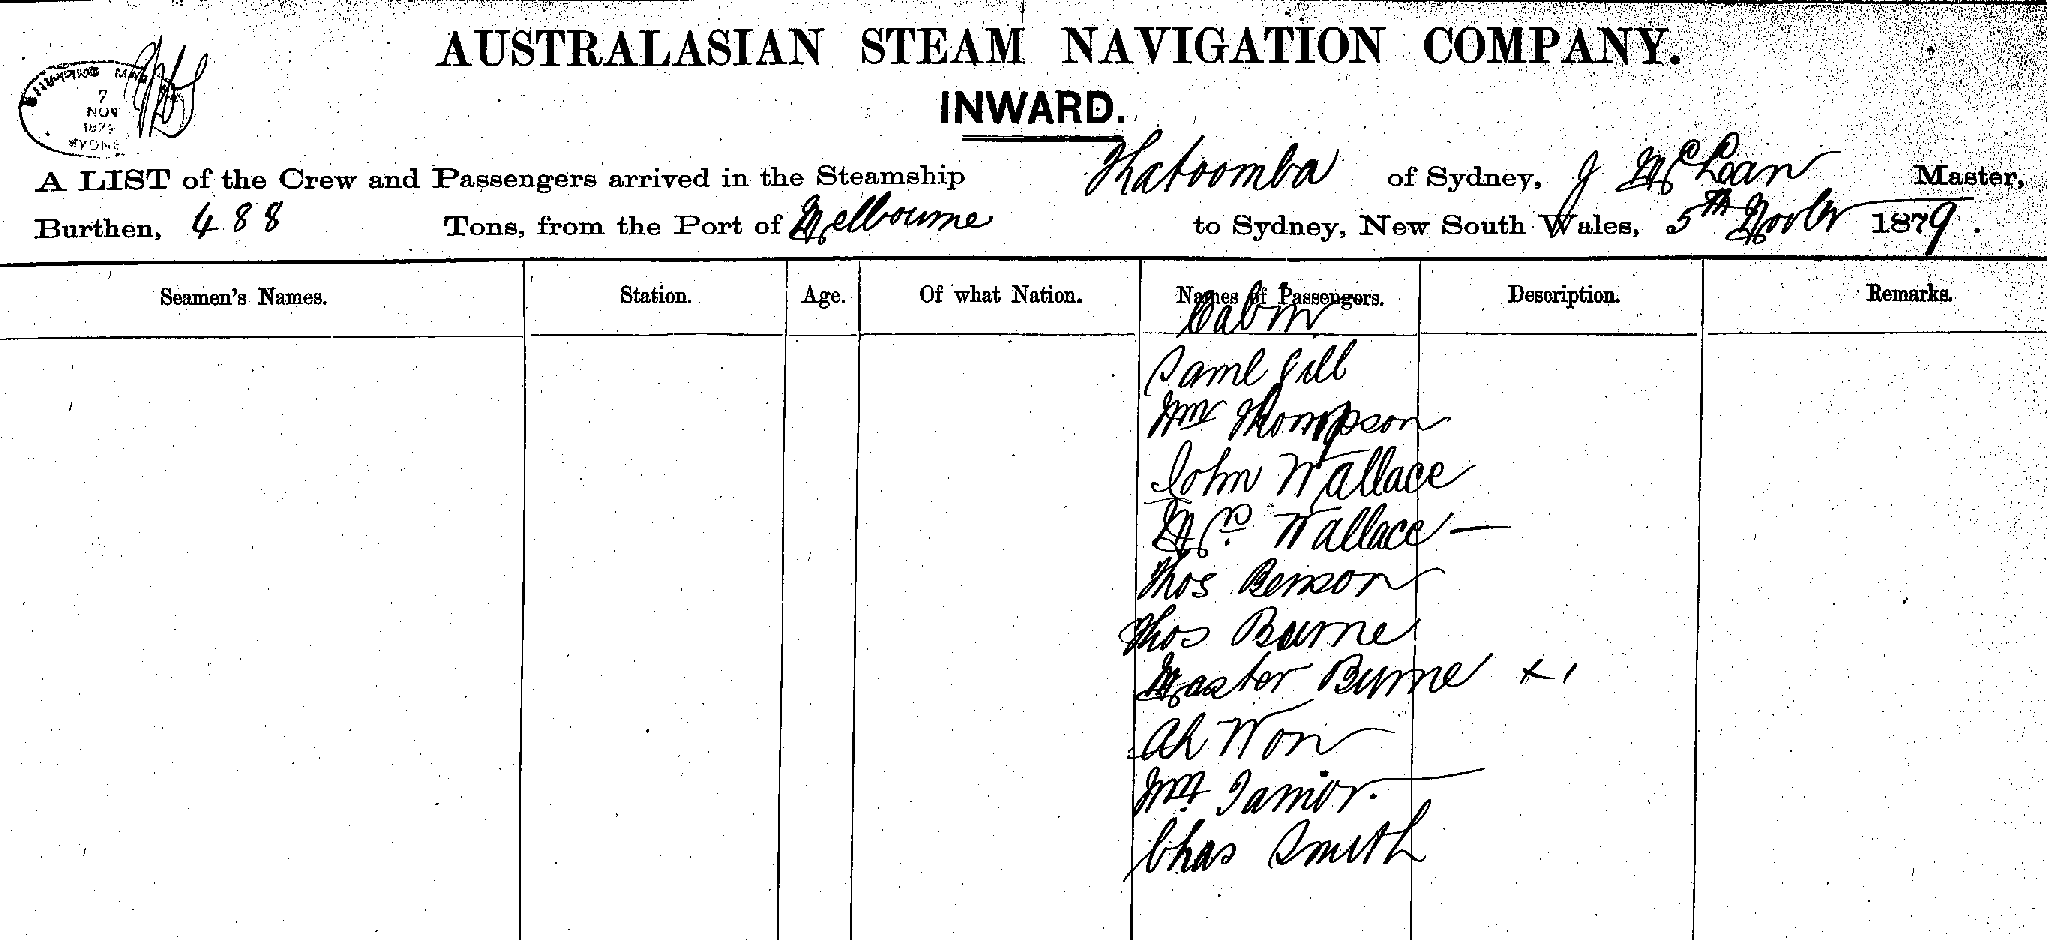 AUSTRALASIAN STEAM NAVIGATION COMPANY.
INWARD.
7
NOV
A LIST of the Crew and Passengers arrived in the Steamship Katoomba of Sydney, J McLean Master,
Burthen, 488 Tons, from the Port of Melbourne to Sydney, New South Wales, 5th Novbr 1879.
Seamen's Names. Station. Age. Of what Nation. Names of Passengers. Description. Remarks.
Cabin
Saml Gill
Wm Thompson
John Wallace
Mrs Wallace —
Thos Benson
Thos Burne
Master Burne x 1
Ah Won
Wm
Chas Smith